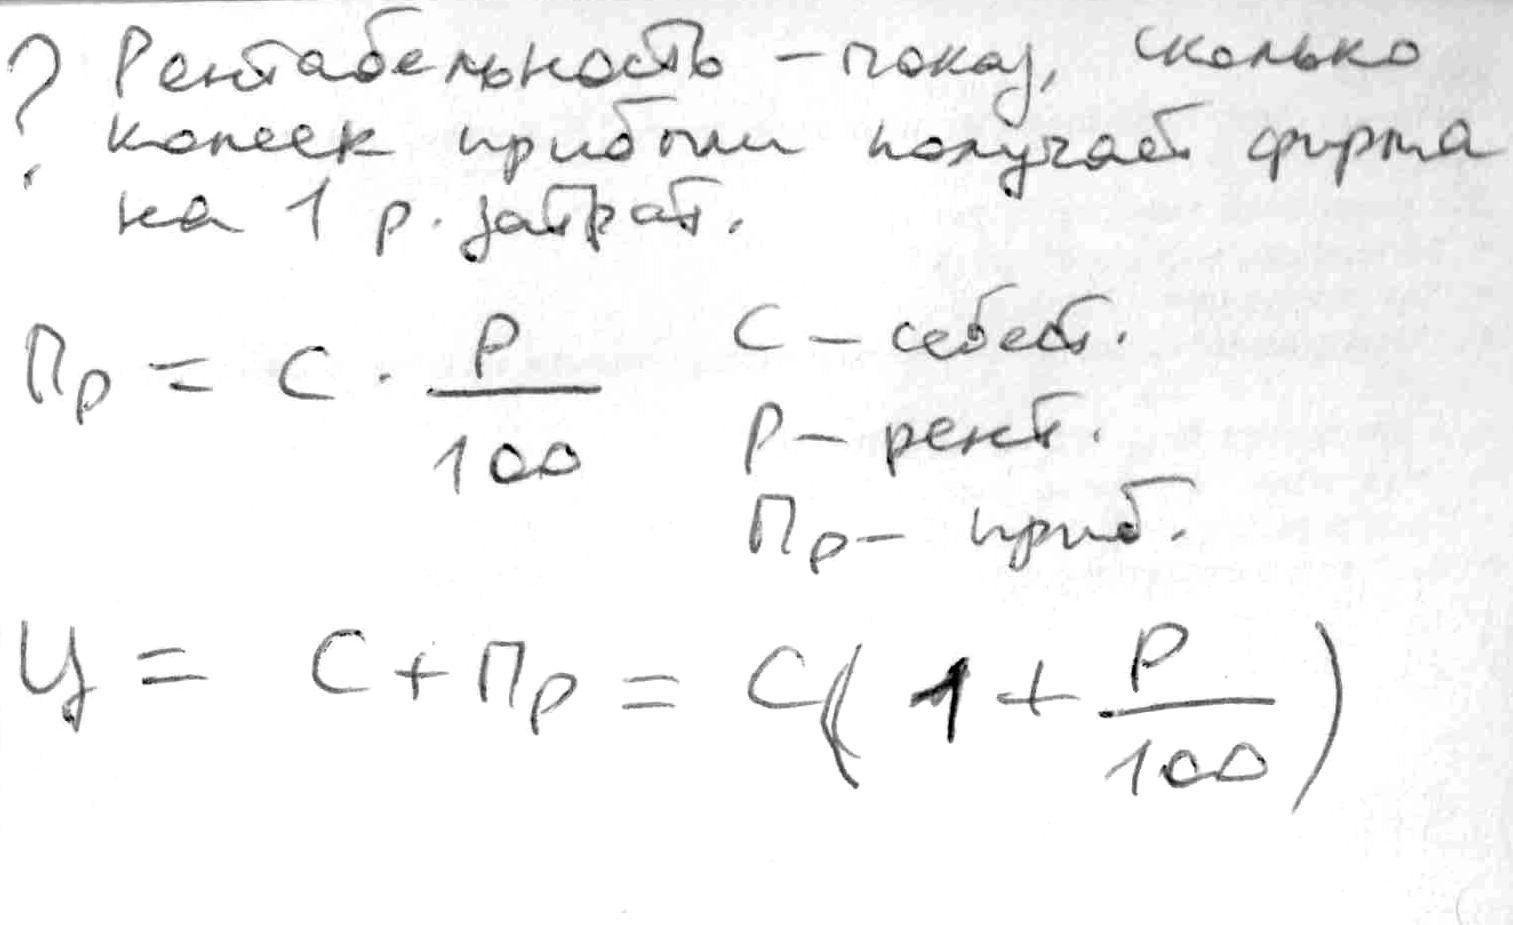 ? Рентабельность – показ, сколько
копеек прибыли получает фирма
на 1 р. затрат.
Пр = С · Р/100
С – себест.
Р – рент.
Пр – приб.
Ц = С + Пр = С(1 + Р/100)